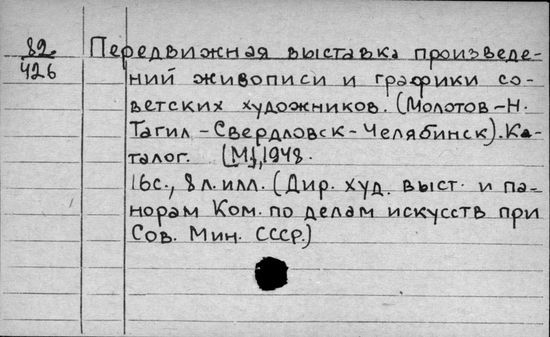 82 Передвижная выставка произведе-
426 ний живописи и графики со-
ветских художников. (Молотов-Н.
Тагил-Свердловск-Челябинск). Ка-
талог. [М], 1948.
16с., 8 л. илл. (Дир. худ. выст. и па-
норам Ком. по делам искусств при
Сов. Мин. СССР.)